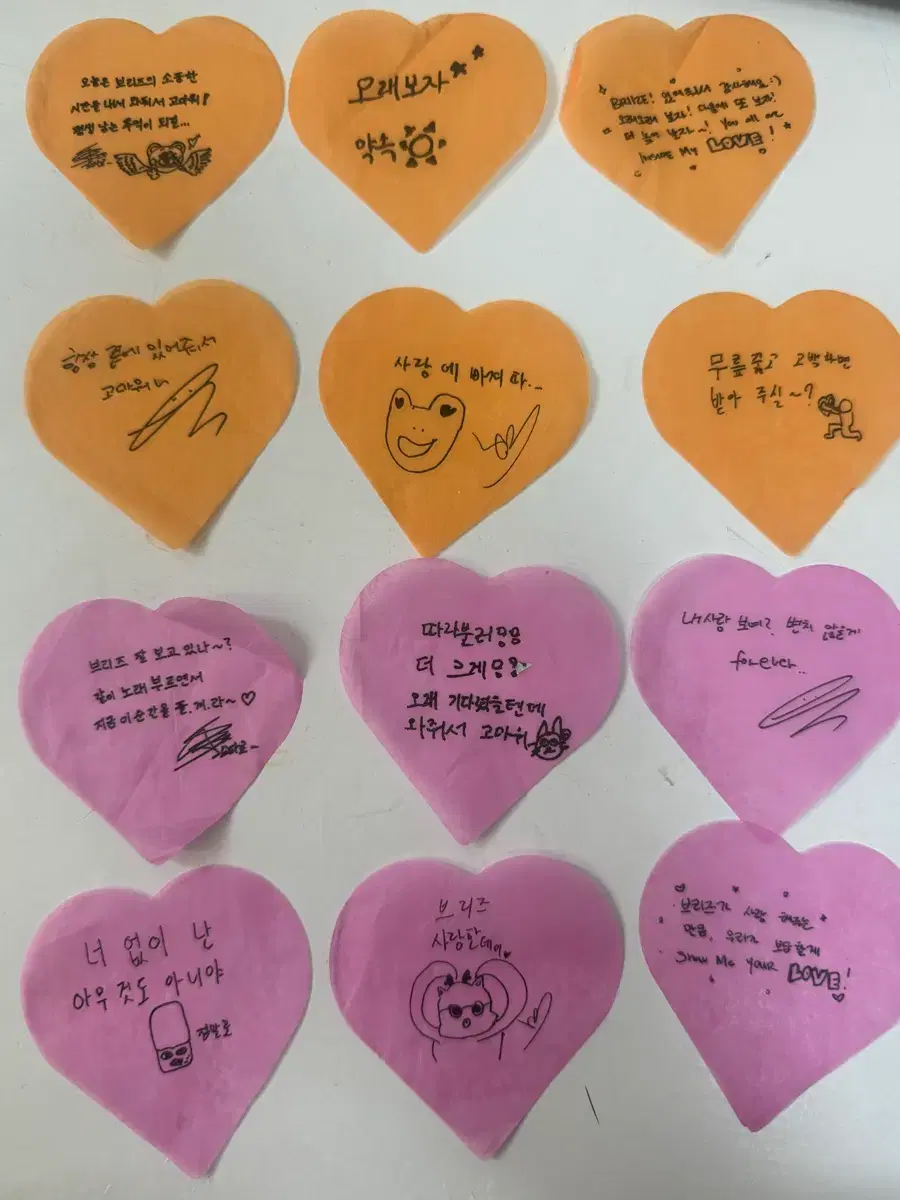 오늘은 브리즈의 소중한
시간을 내서 와줘서 고마워!
평생 남는 추억이 되길...
오래보자
약속
BRIIZE! 있어줘서 감사해요 :)
오래오래 보자! 다음에 또 보자!
더 높이 날자~! You all are
Inside My LOVE!
항상 곁에 있어줘서
고마워
사랑에 빠져따...
무릎꿇고 고백하면
받아 주실~?
브리즈 잘 보고 있나~?
같이 노래부르면서
지금 이순간을 즐.겨.라~
따라불러
더 크게
오래 기다렸을텐데
와줘서 고마워
내사랑 보여? 변치 않을게
forever..
너 없이 난
아무것도 아니야
브리즈
사랑한데이
브리즈가 사랑 해주는
만큼, 우리가 보답할게
Show Me Your LOVE!